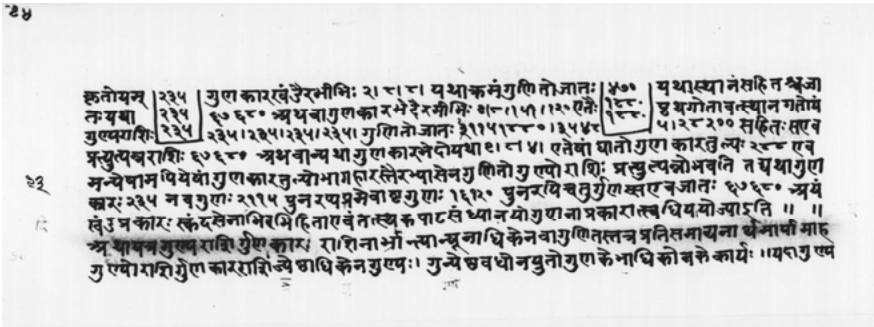 २४
कृतोयम् २३५ गुणकारखंडैरभीभिः २।८।८। यथाक्रमंगुणितोजातः ४७० यथास्थानंसहितश्चजा
तःयथा २३५ ६७६८० अथवागुणकारभेदैरमीभिः १८८० स्थानगतोयं
गुण्यराशिः २३५ २३५।२३५।२३५।२३५। गुणितोजातः २११५१८८०।३५४८ १८८० ५।२८२०० सहितः सएव
प्रत्युत्पन्नराशिः ६७६८० अथवान्यथागुणकारभेदोयथा ९।८।४। एतेषांघातोगुणकारतुल्यः २८८ एव
मन्येषामपियेषांगुणकारतुल्योभागहारस्तैरभ्यासेनगुणितोगुण्योराशिः प्रत्युत्पन्नोभवति तद्यथागुण
२३
कारः २३५ नवगुणः २११५ पुनरप्ययमेवाष्टगुणः १६९२० पुनरपिचतुर्गुणःसएवजातः ६७६८० अयं
खंडप्रकारः स्कंदसेनाभिरभिहिताएवंतत्स्थकपाटसंध्यानयोगुणनाप्रकारात्स्वधिययोज्याइति ॥ ॥
अथायत्रगुण्यराशिर्गुणकारः राशिनार्भ्रान्त्यान्यूनाधिकेनवागुणितस्तत्रप्रतिसमायनार्थमार्यामाह
गुण्योराशिर्गुणकारराशिज्येष्ठाधिकेनगुण्यः। गुन्येष्टवधोनयुतोगुणकेभाधिकोचकेकार्यः ॥यदागुण्य